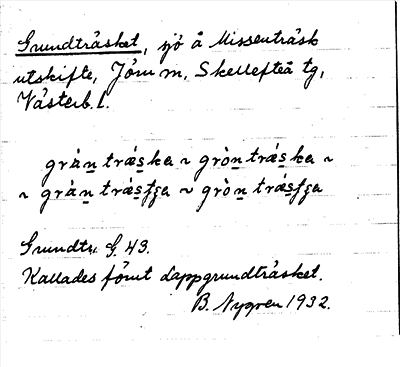 Grundträsket, sjö å Missenträsk
utskifte, Jörn sn, Skellefteå tg,
Västerb. l.
grànträ́ska ~ grònträ́ska ~
~ grànträ́sʃʒa ~ grònträ́sʃʒa
Grundtr. G. 43.
Kallades förut Lappgrundträsket.
B. Nygren 1932.